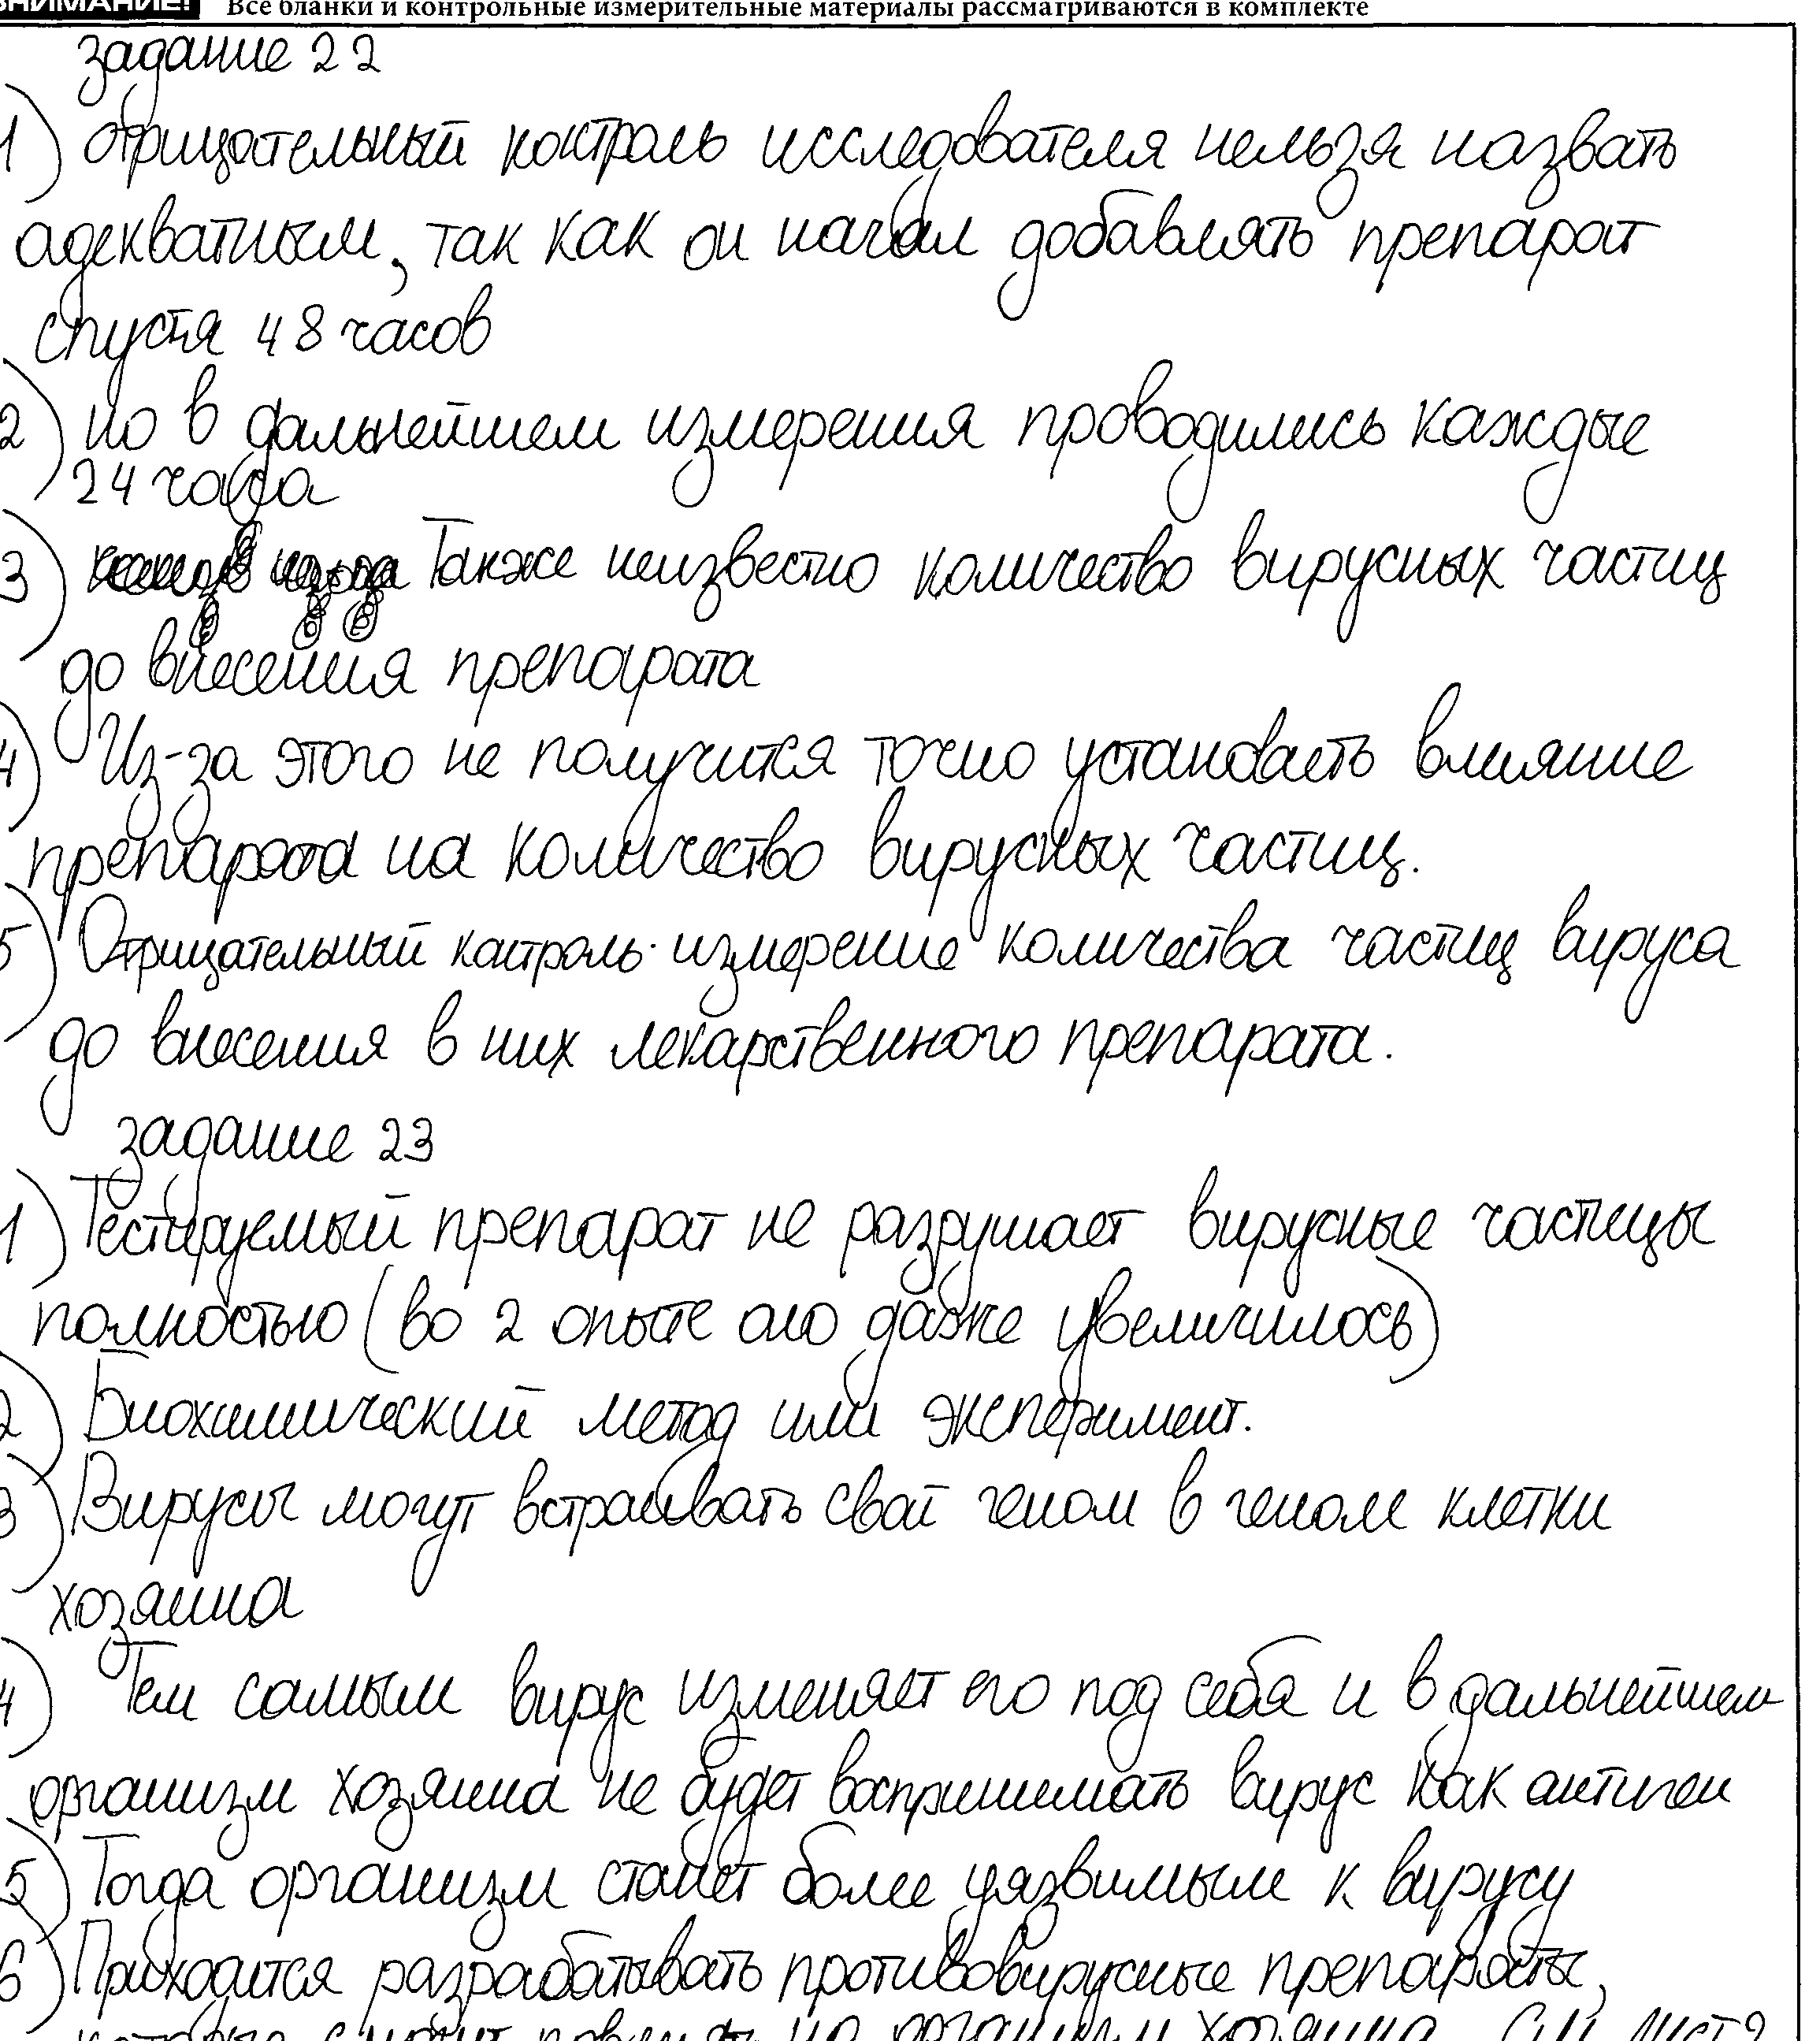 ВНИМАНИЕ! Все бланки и контрольные измерительные материалы рассматриваются в комплекте
задание 22
1) отрицательный контроль исследователя нельзя назвать
адекватным, так как он начал добавлять препарат
спустя 48 часов
2) но в дальнейшем измерения проводились каждые
24 часа
3) Также неизвестно количество вирусных частиц
до внесения препарата
4) Из-за этого не получится точно установить влияние
препарата на количество вирусных частиц.
5) Отрицательный контроль - измерение количества частиц вируса
до внесения в них лекарственного препарата.
задание 23
1) Тестируемый препарат не разрушает вирусные частицы
полностью (во 2 опыте оно даже увеличилось)
2) Биохимический метод или эксперимент.
3) Вирусы могут встраивать свой геном в геном клетки
хозяина
4) Тем самым вирус изменяет его под себя и в дальнейшем
организм хозяина не будет воспринимать вирус как антиген
5) Тогда организм станет более уязвимым к вирусу
6) Приходится разрабатывать противовирусные препараты,
которые смогут повлиять на организм хозяина См лист 2